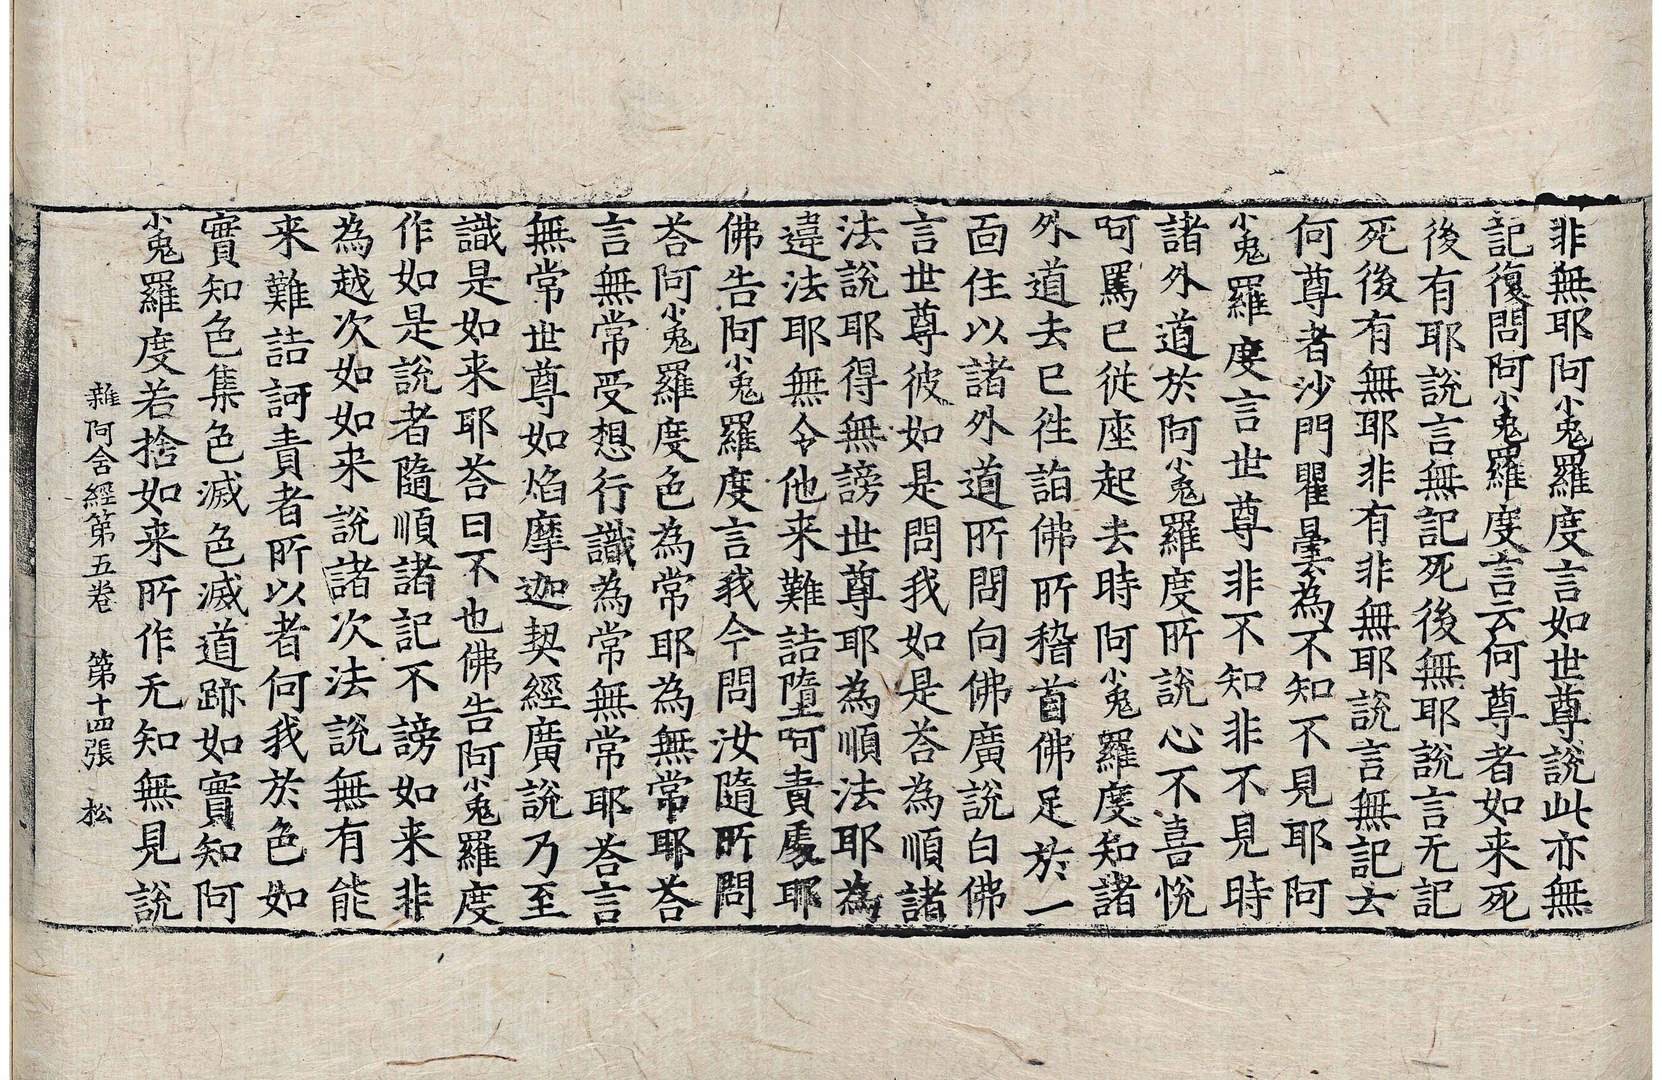 非無耶阿㝹羅度言如世尊說此亦無
記復問阿㝹羅度言云何尊者如来死
後有耶說言無記死後無耶說言无記
死後有無耶非有非無耶說言無記云
何尊者沙門瞿曇為不知不見耶阿
㝹羅度言世尊非不知非不見時
諸外道於阿㝹羅度所說心不喜悅
呵罵已從座起去時阿㝹羅度知諸
外道去已往詣佛所稽首佛足於一
面住以諸外道所問問向佛廣說白佛
言世尊彼如是問我如是荅為順諸
法說耶得無謗世尊耶為順法耶為
違法耶無令他来難詰墮呵責處耶
佛告阿㝹羅度言我今問汝隨所問
荅阿㝹羅度色為常耶為無常耶荅
言無常受想行識為常無常耶荅言
無常世尊如焰摩迦契經廣說乃至
識是如来耶荅曰不也佛告阿㝹羅度
作如是說者隨順諸記不謗如来非
為越次如如来說諸次法說無有能
来難詰訶責者所以者何我於色如
實知色集色滅色滅道跡如實知阿
㝹羅度若捨如来所作无知無見說
雜阿含經第五卷 第十四張 松